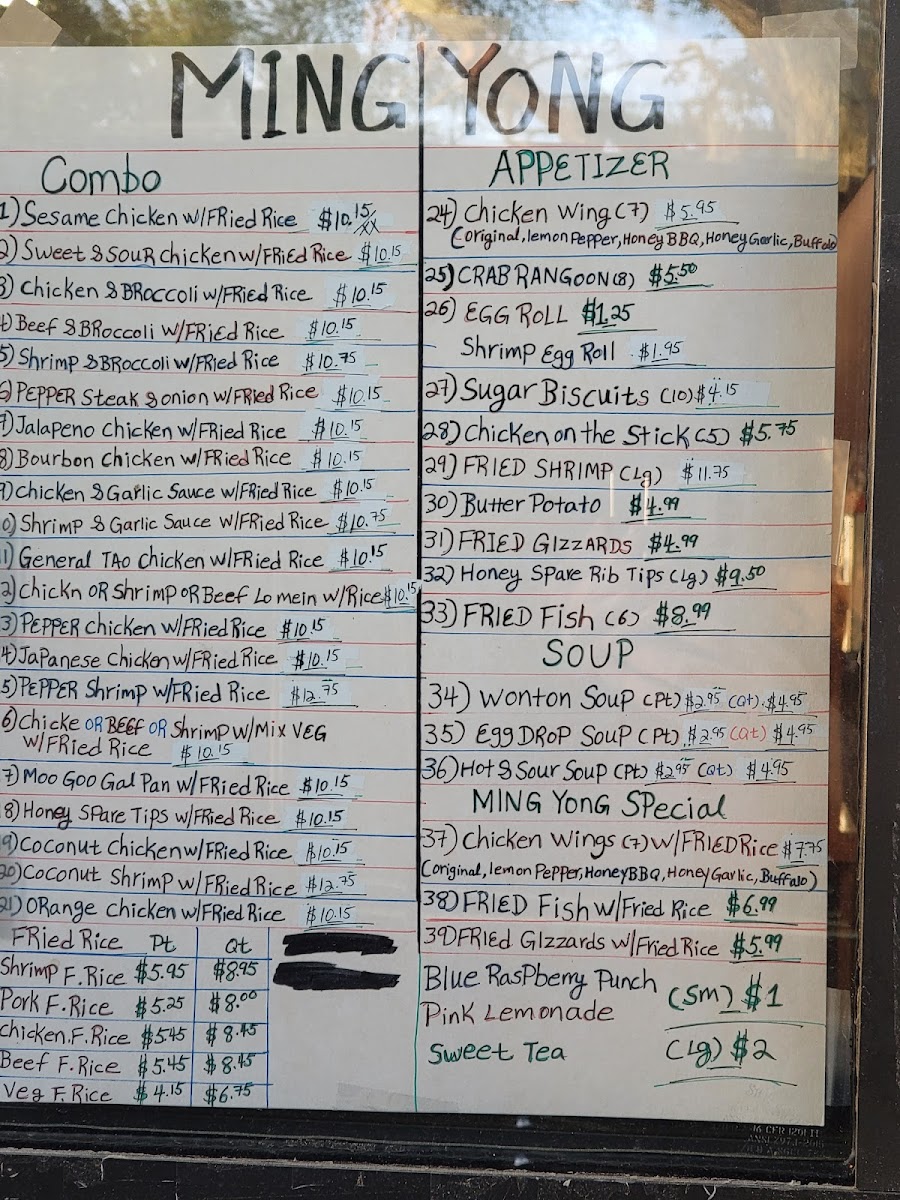 MING YONG
Combo
1) Sesame Chicken w/FRied Rice $10.15
2) Sweet & SouR chicken w/FRied Rice $10.15
3) Chicken & BRoccoli w/FRied Rice $10.15
4) Beef & BRoccoli w/FRied Rice $10.15
5) Shrimp & BRoccoli w/FRied Rice $10.75
6) PEPPER Steak & onion w/FRied Rice $10.15
7) Jalapeno Chicken w/FRied Rice $10.15
8) Bourbon Chicken w/FRied Rice $10.15
9) chicken & Garlic Sauce w/FRied Rice $10.15
0) Shrimp & Garlic Sauce w/FRied Rice $10.75
11) General TAo Chicken w/FRied Rice $10.15
2) Chickn OR Shrimp OR Beef Lo mein w/Rice $10.15
3) PEPPER chicken w/FRied Rice $10.15
4) JaPanese Chicken w/FRied Rice $10.15
5) PEPPER Shrimp w/FRied Rice $12.75
6) Chicke OR BEEF OR Shrimp w/Mix VEG
w/FRied Rice $10.15
7) Moo Goo Gal Pan w/FRied Rice $10.15
8) Honey SPare Tips w/FRied Rice $10.15
9) Coconut Chicken w/FRied Rice $10.15
20) Coconut Shrimp w/FRied Rice $12.75
21) ORange chicken w/FRied Rice $10.15
FRied Rice Pt Qt
Shrimp F.Rice $5.95 $8.95
Pork F.Rice $5.25 $8.00
chicken.F.Rice $5.45 $8.45
Beef F.Rice $5.45 $8.45
Veg F.Rice $4.15 $6.75
APPETIZER
24) Chicken Wing (7) $5.95
(original, lemon Pepper, Honey BBQ, Honey Garlic, Buffalo)
25) CRAB RANGOON (8) $5.50
26) EGG ROLL $1.25
Shrimp Egg Roll $1.95
27) Sugar Biscuits (10) $4.15
28) Chicken on the Stick (5) $5.75
29) FRIED SHRIMP (Lg) $11.75
30) Butter Potato $4.99
31) FRIED GIZZARDS $4.99
32) Honey Spare Rib Tips (Lg) $9.50
33) FRIED Fish (6) $8.99
SOUP
34) Wonton Soup (Pt) $2.95 (Qt) $4.95
35) Egg DROP Soup (Pt) $2.95 (Qt) $4.95
36) Hot & Sour Soup (Pt) $2.95 (Qt) $4.95
MING YONG SPecial
37) Chicken Wings (7) w/FRIED Rice $7.75
(original, lemon Pepper, Honey BBQ, Honey Garlic, Buffalo)
38) FRIED Fish w/Fried Rice $6.99
39) FRIEd GIzzards w/Fried Rice $5.99
Blue RasPberry Punch
Pink Lemonade
Sweet Tea
(Sm) $1
(Lg) $2
16 CFR 1201 II